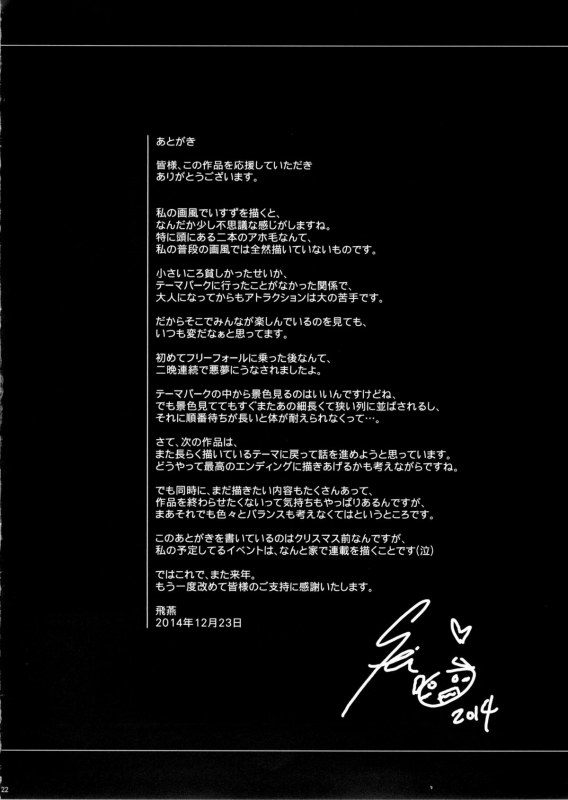 あとがき
皆様、この作品を応援していただき
ありがとうございます。
私の画風でいすずを描くと、
なんだか少し不思議な感じがしますね。
特に頭にある二本のアホ毛なんて、
私の普段の画風では全然描いていないものです。
小さいころ貧しかったせいか、
テーマパークに行ったことがなかった関係で、
大人になってからもアトラクションは大の苦手です。
だからそこでみんなが楽しんでいるのを見ても、
いつも変だなぁと思ってます。
初めてフリーフォールに乗った後なんて、
二晩連続で悪夢にうなされましたよ。
テーマパークの中から景色見るのはいいんですけどね、
でも景色見ててもすぐまたあの細長くて狭い列に並ばされるし、
それに順番待ちが長いと体が耐えられなくって…。
さて、次の作品は、
また長らく描いているテーマに戻って話を進めようと思っています。
どうやって最高のエンディングに描きあげるかも考えながらですね。
でも同時に、まだ描きたい内容もたくさんあって、
作品を終わらせたくないって気持ちもやっぱりあるんですが、
まあそれでも色々とバランスも考えなくてはというところです。
このあとがきを書いているのはクリスマス前なんですが、
私の予定してるイベントは、なんと家で連載を描くことです(泣)
ではこれで、また来年。
もう一度改めて皆様のご支持に感謝いたします。
飛燕
2014年12月23日
2014
22